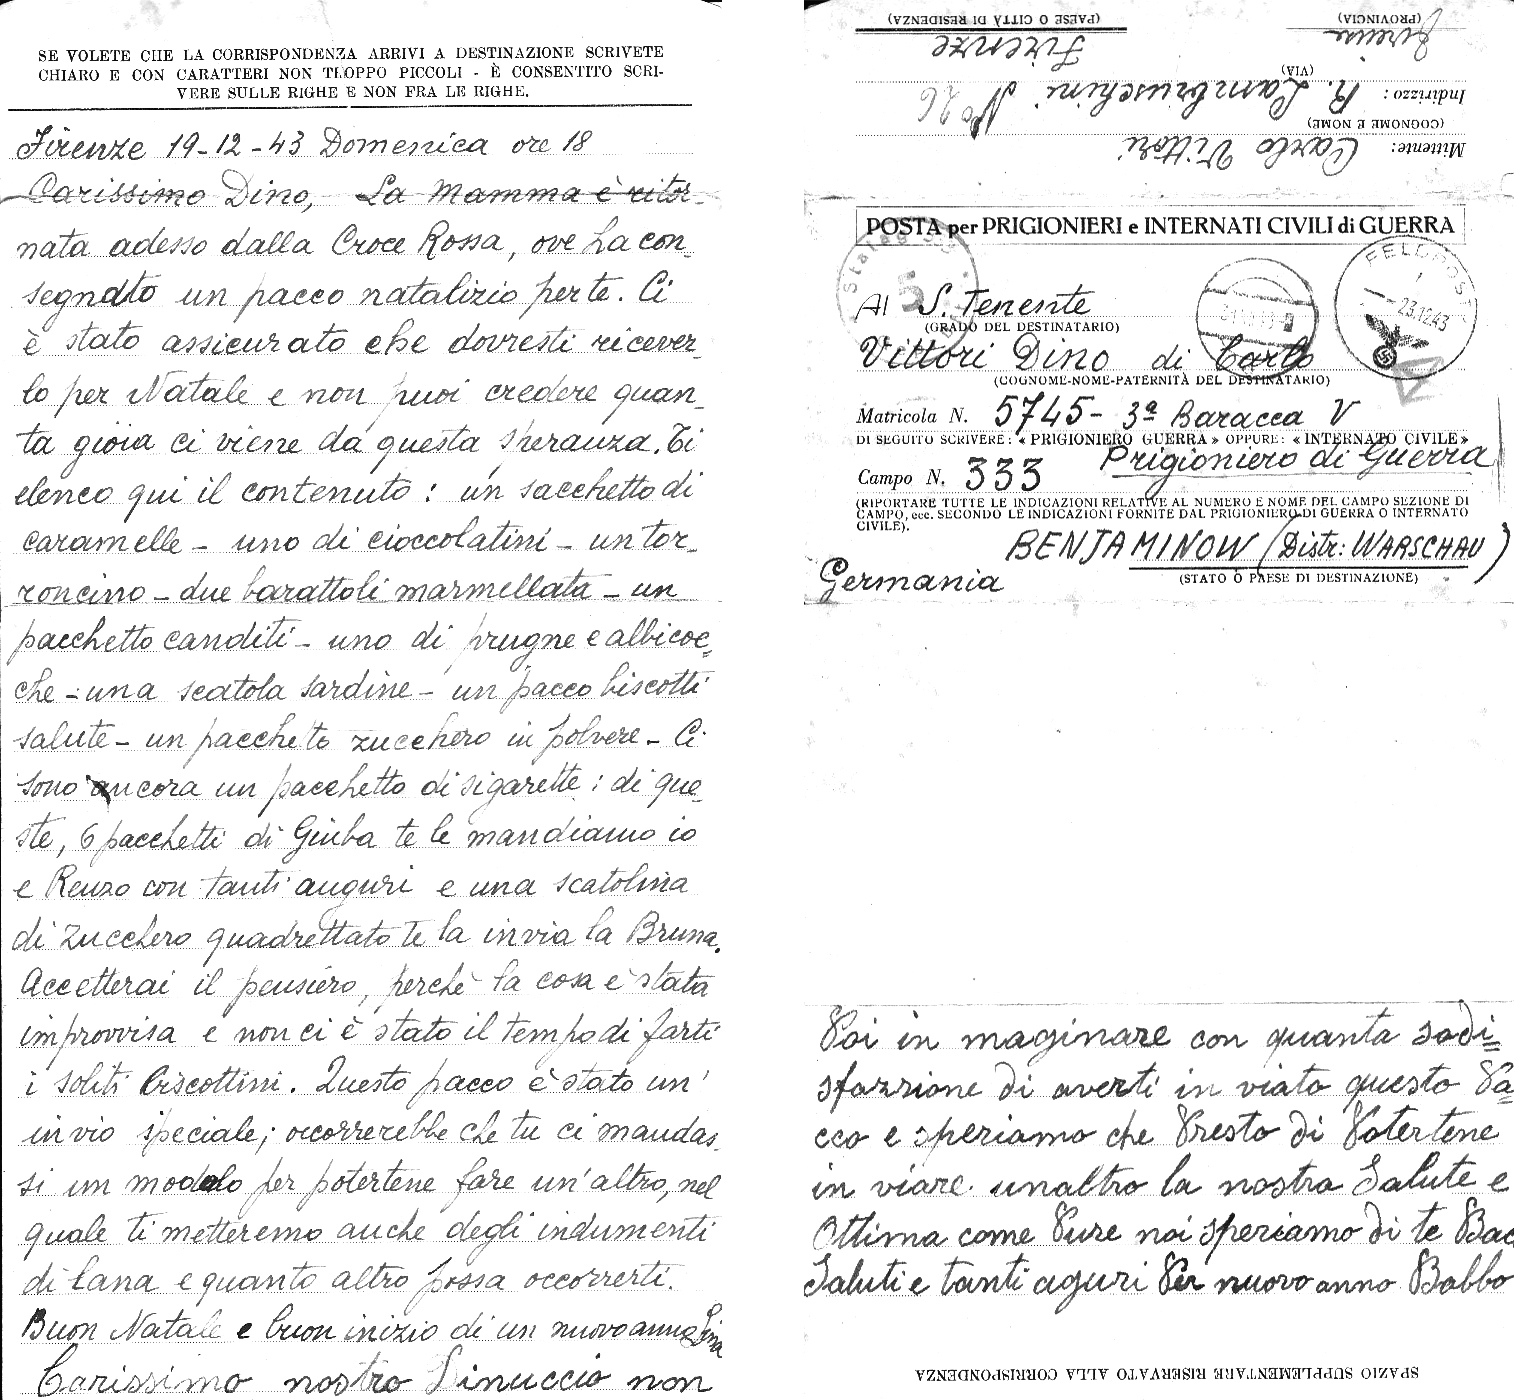 SE VOLETE CHE LA CORRISPONDENZA ARRIVI A DESTINAZIONE SCRIVETE
CHIARO E CON CARATTERI NON TROPPO PICCOLI - È CONSENTITO SCRI-
VERE SULLE RIGHE E NON FRA LE RIGHE.
Firenze 19-12-43 Domenica ore 18
Carissimo Dino, La Mamma è ritor-
nata adesso dalla Croce Rossa, ove ha con-
segnato un pacco natalizio per te. Ci
è stato assicurato che dovresti ricever-
lo per Natale e non puoi credere quan-
ta gioia ci viene da questa speranza. Ti
elenco qui il contenuto: un sacchetto di
caramelle - uno di cioccolatini - un tor-
roncino - due barattoli marmellata - un
pacchetto canditi - uno di prugne e albicoc-
che - una scatola sardine - un pacco biscotti
salute - un pacchetto zucchero in polvere - Ci
sono ancora un pacchetto di sigarette: di que-
ste, 6 pacchetti di Giuba te le mandiamo io
e Renzo con tanti auguri e una scatolina
di zucchero quadrettato te la invia la Bruna.
Accetterai il pensiero, perchè la cosa è stata
improvvisa e non ci è stato il tempo di farti
i soliti biscottini. Questo pacco è stato un'
invio speciale; occorrerebbe che tu ci mandas-
si un modulo per potertene fare un'altro, nel
quale ti metteremo anche degli indumenti
di lana e quanto altro possa occorrerti.
Buon Natale e buon inizio di un nuovo anno Lina
Carissimo nostro Dinuccio non
(PAESE O CITTÀ DI RESIDENZA)
(PROVINCIA)
Firenze
Firenze
(VIA)
Indirizzo: R. Lambruschini N° 26
(COGNOME E NOME)
Mittente: Carlo Vittori
POSTA per PRIGIONIERI e INTERNATI CIVILI di GUERRA
Stalag 333
5
FELDPOST
23.12.43
Al S. Tenente
(GRADO DEL DESTINATARIO)
Vittori Dino di Carlo
(COGNOME-NOME-PATERNITÀ DEL DESTINATARIO)
Matricola N. 5745- 3ª Baracca V
DI SEGUITO SCRIVERE: « PRIGIONIERO GUERRA » OPPURE: « INTERNATO CIVILE »
Prigioniero di Guerra
Campo N. 333
(RIPORTARE TUTTE LE INDICAZIONI RELATIVE AL NUMERO E NOME DEL CAMPO SEZIONE DI
CAMPO, ecc. SECONDO LE INDICAZIONI FORNITE DAL PRIGIONIERO DI GUERRA O INTERNATO
CIVILE).
BENJAMINOW (Distr: WARSCHAU)
Germania
(STATO O PAESE DI DESTINAZIONE)
Poi in maginare con quanta sodi=
sfazzione di averti in viato questo Pa=
cco e speriamo che Presto di Potertene
in viare unaltro la nostra Salute e
Ottima come Pure noi speriamo di te Bac
Saluti e tanti aguri Per nuovo anno Babbo
SPAZIO SUPPLEMENTARE RISERVATO ALLA CORRISPONDENZA